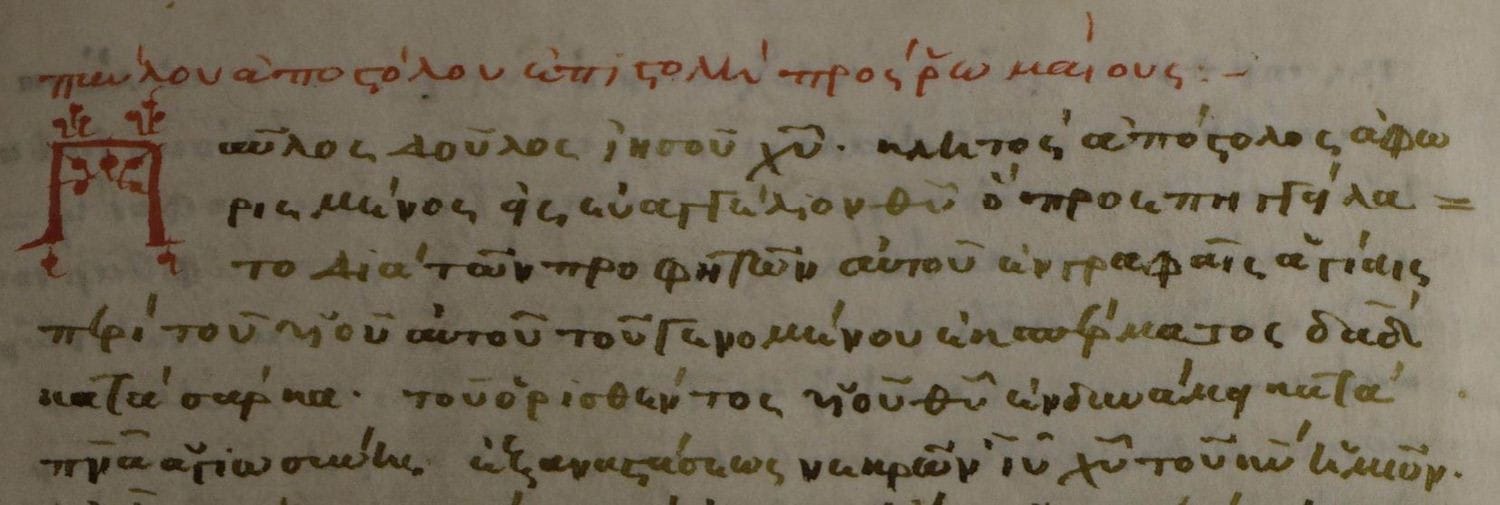 παύλου ἀποστόλου ἐπιστολὴ πρὸς ῥωμαίους :-
Παῦλος δοῦλος ἰησοῦ χῦ· κλητὸς ἀπόστολος ἀφω
ρισμένος εἰς εὐαγγέλιον θῦ ὃ προεπηγγείλα =
το διὰ τῶν προφητῶν αὐτοῦ ἐν γραφαῖς ἁγίαις
περὶ τοῦ υἱοῦ αὐτοῦ τοῦ γενομένου ἐκ σπέρματος δαδ
κατὰ σάρκα· τοῦ ὁρισθέντος υἱοῦ θῦ ἐν δυνάμει κατὰ
πνᾶ ἁγιωσύνης ἐξ ἀναστάσεως νεκρῶν ἰῦ χῦ τοῦ κῦ ἡμῶν.